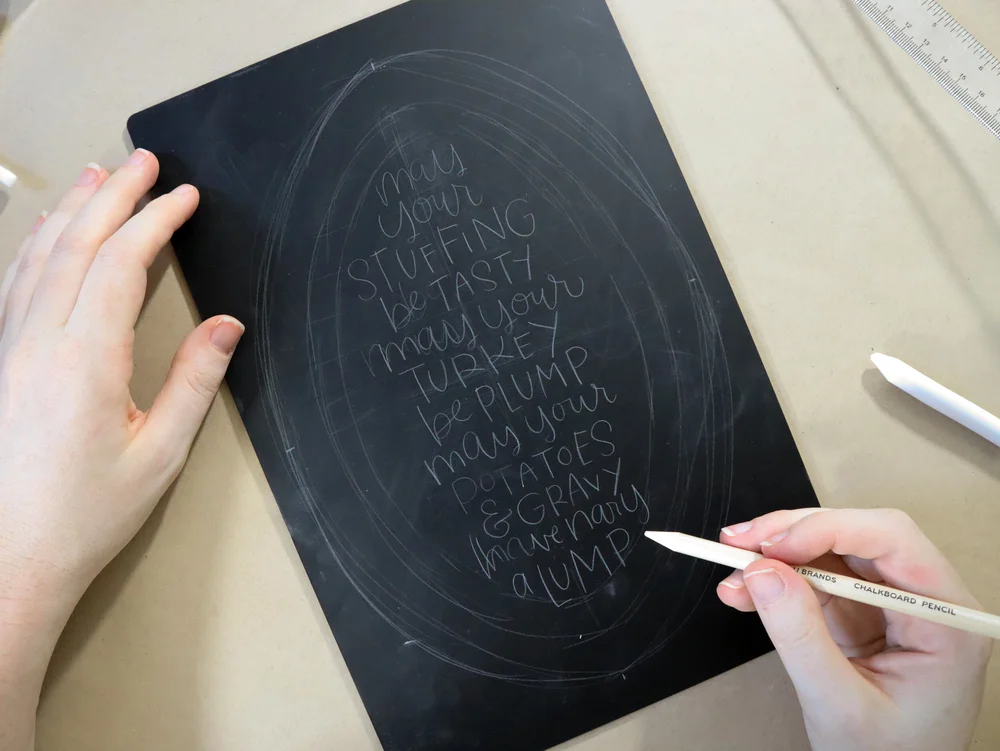 may
your
STUFFING
be TASTY
may your
TURKEY
be PLUMP
may your
POTATOES
& GRAVY
have nary
a LUMP
BRANDS CHALKBOARD PENCIL
12
13
14
15
16
5
6